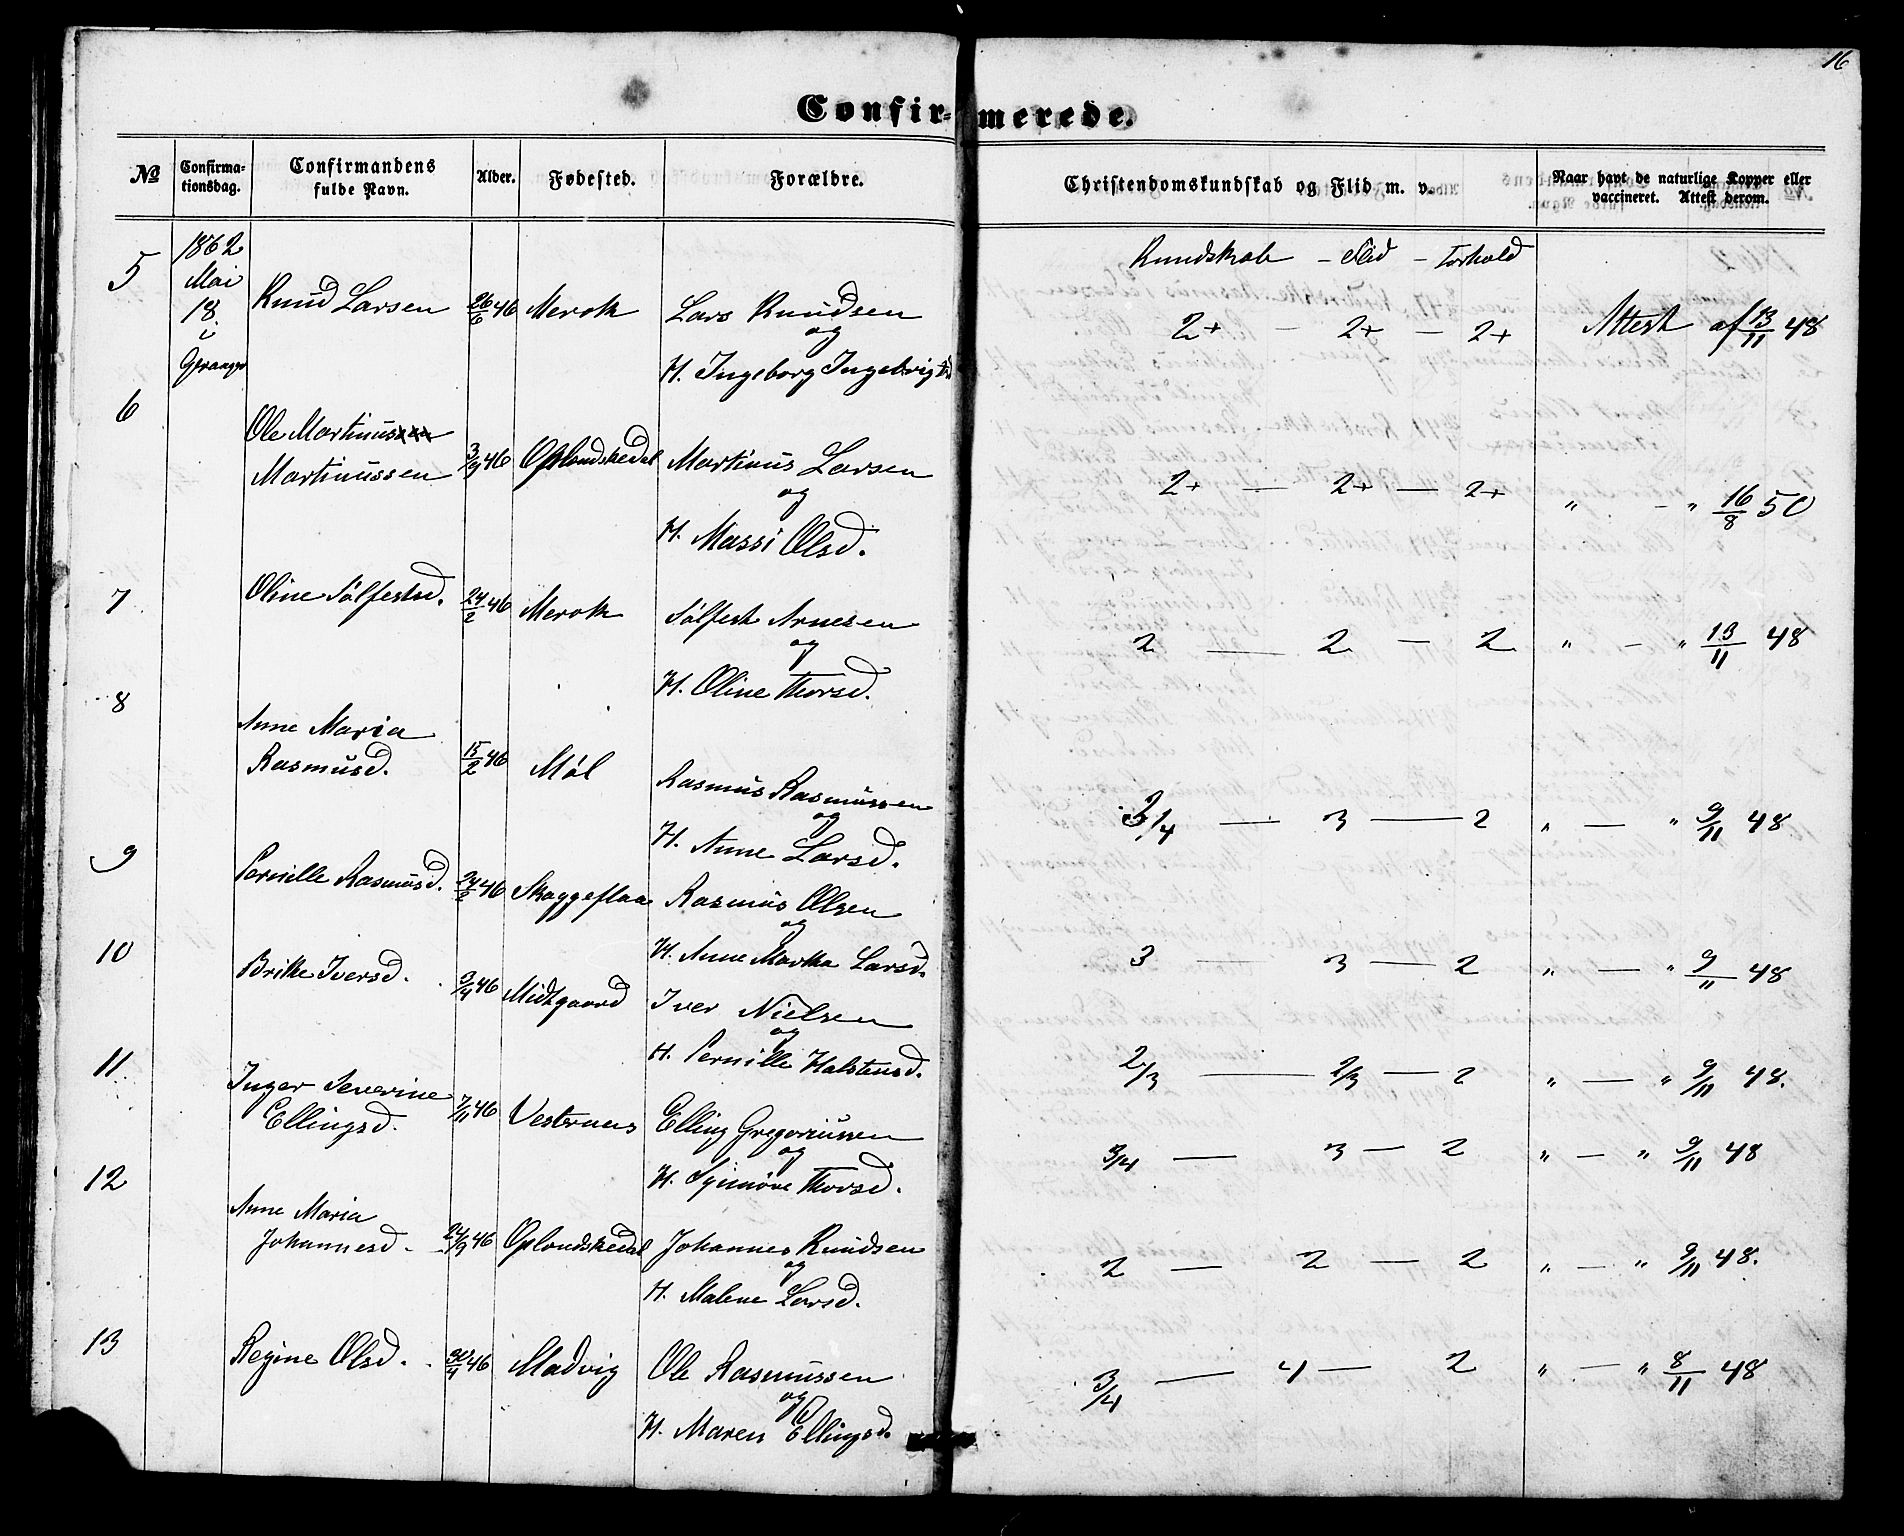 16
Confirmerede.
No
Confirma-
tionsdag.
Confirmandens
fulde Navn.
Alder.
Fødested.
Forældre.
Christendomskundskab og Flid m. v.
Naar havt de naturlige Kopper eller
vaccineret. Attest derom.
1862
Mai
18.
i
Kundskab - Flid - Forhold
5 Knud Larsen 26/6 46 Merok Lars Knudsen
og
H. Ingeborg Ingebrigtsd
2+ - 2+ - 2+ Attest af 13/11 48
6 Ole Martinus
Martinussen 3/9 46 Oplandskedal Martinus Larsen
og
H. Massi Olsd.
2+ - 2+ - 2+ " - " 16/8 50
7 Oline Sølfestsd. 24/2 46 Merok Sølfest Arnesen
og
H. Oline Thorsd.
2 - 2 - 2 " - " 13/11 48
8 Anne Maria
Rasmusd. 15/2 46 Møl Rasmus Rasmussen
og
H. Anne Larsd.
3/4 - 3 - 2 " - " 9/11 48
9 Pernille Rasmusd. 24/2 46 Skaggeflaa Rasmus Olsen
og
H. Anne Martha Larsd.
3 - 3 - 2 " - " 9/11 48
10 Brithe Iversd. 3/4 46 Midtgaard Iver Nielsen
og
H. Pernille Halstensd.
2/3 - 2/3 - 2 " - " 9/11 48.
11 Inger Severine
Ellingsd. 7/11 46 Vesteraas Elling Gregoriussen
og
H. Synnøve Thorsd.
3/4 - 3 - 2 " - " 9/11 48
12 Anne Maria
Johannesd. 24/9 46 Oplandskedal Johannes Knudsen
og
H. Malene Larsd.
2 - 2 - 2 " - " 9/11 48.
13 Regine Olsd. 46 Madvig Ole Rasmussen
og
H. Maren Ellingsd.
3/4 - 4 - 2 " - " 8/11 48